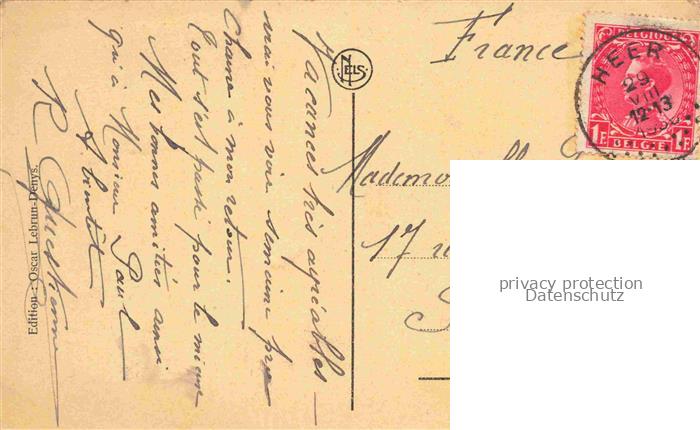 Vacances très agréables —
irai vous voir semaine pro
chaine à mon retour.
Tout s'est passé pour le mieux
Mes bonnes amitiés ainsi
qu'à Monsieur Paul
A bientôt
R
Edition : Oscar Lebrun-Denys.
NELS
France
Mademo
17
BELGIQUE
HEER
29
VIII
12-13
1F BELGIË 1F
privacy protection
Datenschutz